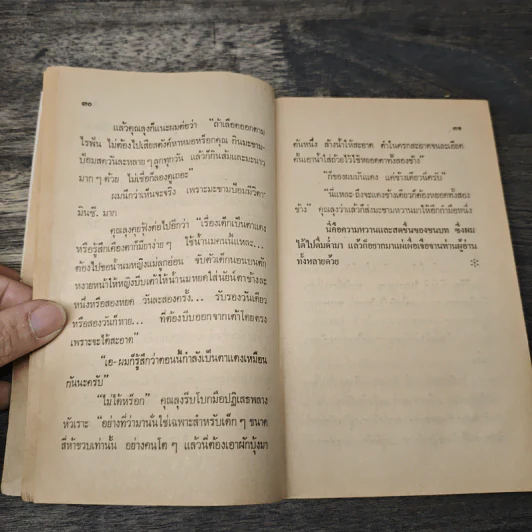 ๓๐
แล้วคุณลุงก็แนะผมต่อว่า "ถ้าเลือดออกตาม
ไรฟัน ไม่ต้องไปเสียสตังค์หาหมอหรือกคุณ กินมะขาม-
ป้อมสดวันละหลาย ๆ ลูกทุกวัน แล้วก็กินส้มและมะนาว
มาก ๆ ด้วย ไม่เชื่อก็ลองดูเถอะ"
ผมนึกว่าเห็นจะจริง เพราะมะขามป้อมมีวิตา-
มินซี. มาก
คุณลุงคุยฟุ้งต่อไปอีกว่า "เรื่องเด็กเป็นตาแดง
หรือรู้สึกเคืองตาก็มียาง่าย ๆ ใช้น้ำนมคนนี่แหละ...
ต้องไปขอน้ำนมหญิงแม่ลูกอ่อน จับตัวเด็กนอนบนตัก
หงายหน้าให้หญิงบีบเต้าให้น้ำนมหยดใส่นัยน์ตาข้างละ
หนึ่งหรือสองหยด วันละสองครั้ง... รับรองวันเดียว
หรือสองวันก็หาย... ที่ต้องบีบออกจากเต้าโดยตรง
เพราะจะได้สะอาด"
"เอ-ผมก็รู้สึกว่าตอนนี้กำลังเป็นตาแดงเหมือน
กันนะครับ"
"ไม่ได้หร็อก" คุณลุงรีบโบกมือปฏิเสธพลาง
หัวเราะ "อย่างที่ว่ามานั่นใช่เฉพาะสำหรับเด็ก ๆ ขนาด
สี่ห้าขวบเท่านั้น อย่างคนโต ๆ แล้วนี่ต้องเอาผักบุ้งมา
๓๑
ต้นหนึ่ง ล้างน้ำให้สะอาด ตำในครกสะอาดจนละเอียด
คั้นเอาน้ำใส่ถ้วยไว้ใช้หยอดตาทั้งสองข้าง"
"ก็ของผมมันแดง แค่ข้างเดียวนี่ครับ"
"นี่แหละ ถึงจะแดงข้างเดียวก็ต้องหยอดทั้งสอง
ข้าง" คุณลุงว่าแล้วก็ส่งมะขามหวานมาให้อีกกำมือหนึ่ง
นี่คือความหวานและสดชื่นของชนบท ซึ่งผม
ได้ไปดื่มด่ำมา แล้วก็อยากมาแผ่เผื่อเจือจานท่านผู้อ่าน
ทั้งหลายด้วย